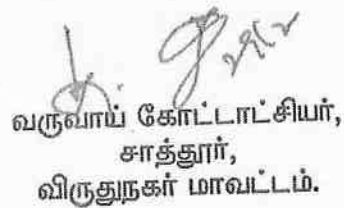 29/2
வருவாய் கோட்டாட்சியர்,
சாத்தூர்,
விருதுநகர் மாவட்டம்.